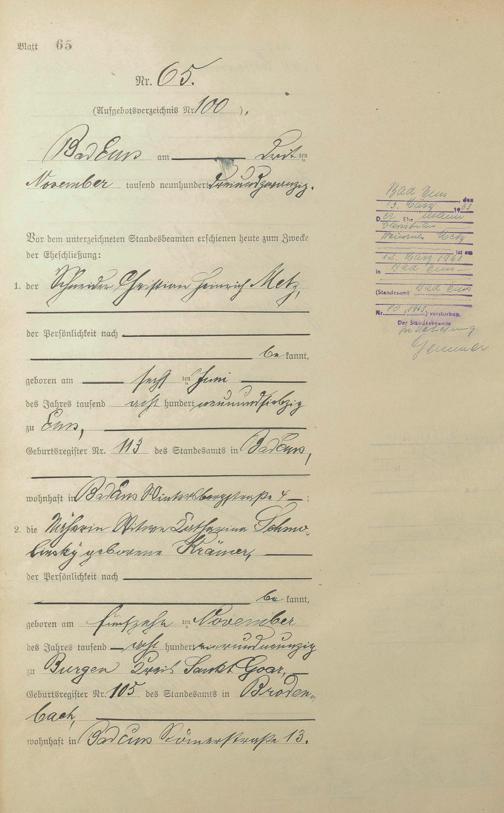 Blatt 65
Nr. 65.
(Aufgebotsverzeichnis Nr. 100).
Bad Ems am ten
November tausend neunhundert
Vor dem unterzeichneten Standesbeamten erschienen heute zum Zwecke
der Eheschließung:
1. der Schneider Christian Heinrich Metz,
der Persönlichkeit nach
bekannt,
geboren am sechs ten Juni
des Jahres tausend acht hundert neunundsiebzig
zu Ems,
Geburtsregister Nr. 113 des Standesamts in Bad Ems,
wohnhaft in Bad Ems Wintersbergstraße 4;
2. die Näherin Witwe Katharina Schmo-
geborene Krämer,
der Persönlichkeit nach
bekannt,
geboren am fünfzehn ten November
des Jahres tausend acht hundert
zu Burgen Kreis Sankt Goar,
Geburtsregister Nr. 105 des Standesamts in Broden-
bach,
wohnhaft in Bad Ems Römerstraße 13.
Bad Ems, den
13. März 19
D. Ehemann
Heinrich Metz
ist am
März
in Bad Ems
(Standesamt Bad Ems
Nr. ) verstorben.
Der Standesbeamte